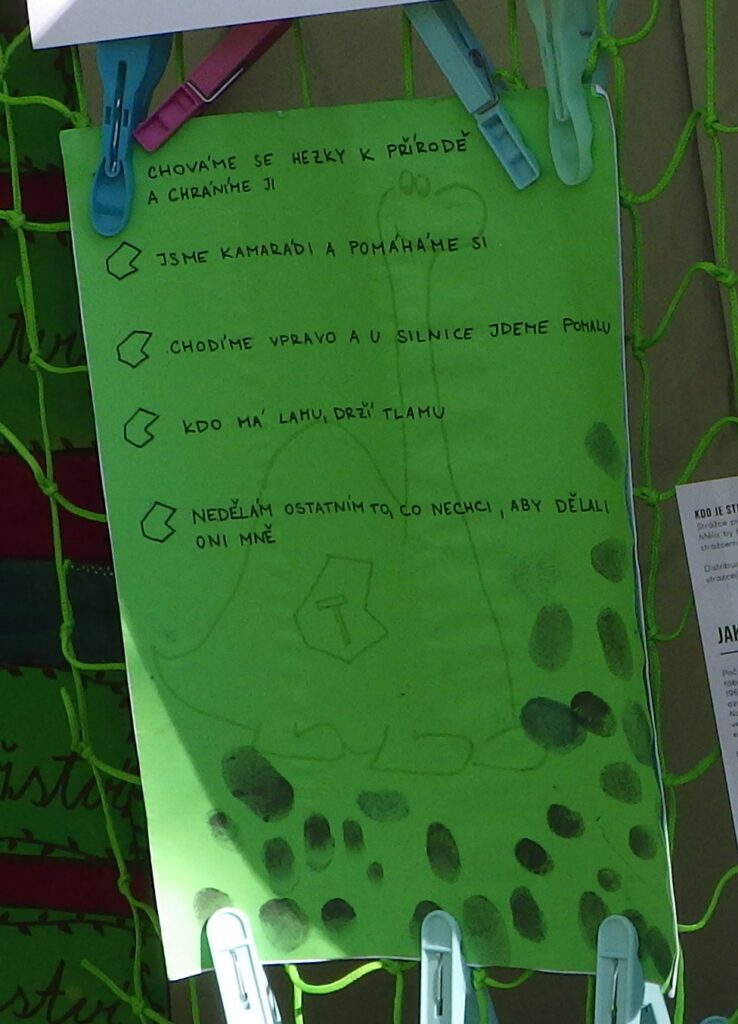 CHOVÁME SE HEZKY K PŘÍRODĚ
A CHRÁNÍME JI
JSME KAMARÁDI A POMÁHÁME SI
CHODÍME VPRAVO A U SILNICE JDEME POMALU
KDO MÁ LAMU, DRŽÍ TLAMU
NEDĚLÁM OSTATNÍM TO, CO NECHCI, ABY DĚLALI
ONI MNĚ
T
KDO JE ST
Strážce
Měla by
strážcem
Distribu
JAK